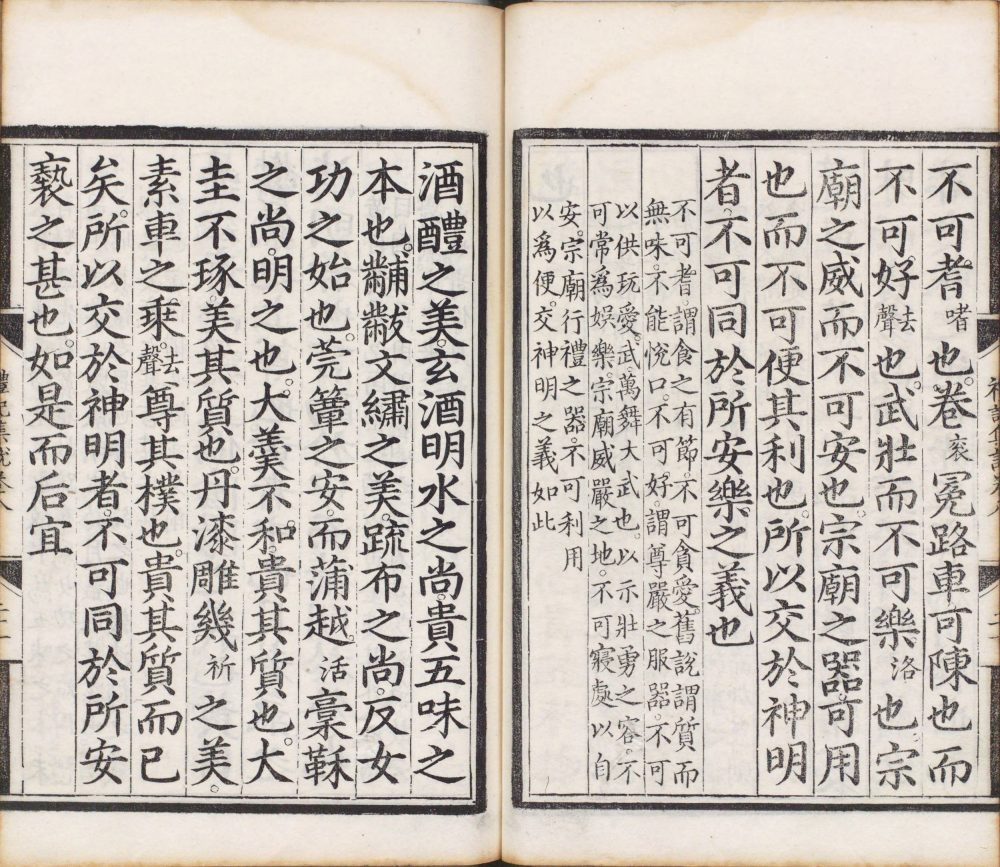 不可耆嗜也卷衮冕路車可陳也而
不可好去聲也武壯而不可樂洛也宗
廟之威而不可安也宗廟之器可用
也而不可便其利也所以交於神明
者不可同於所安樂之義也
不可耆謂食之有節不可貪愛舊說謂質而
無味不能悅口不可好謂尊嚴之服器不可
以供玩愛武萬舞大武也以示壯勇之容不
可常爲娛樂宗廟威嚴之地不可寢處以自
安宗廟行禮之器不可利用
以爲便交神明之義如此
酒醴之美玄酒明水之尚貴五味之
本也黼黻文繡之美疏布之尚反女
功之始也莞簟之安而蒲越活稾鞂
之尚明之也大羹不和貴其質也大
圭不琢美其質也丹漆雕幾祈之美
素車之乘去聲尊其樸也貴其質而已
矣所以交於神明者不可同於所安
褻之甚也如是而后宜